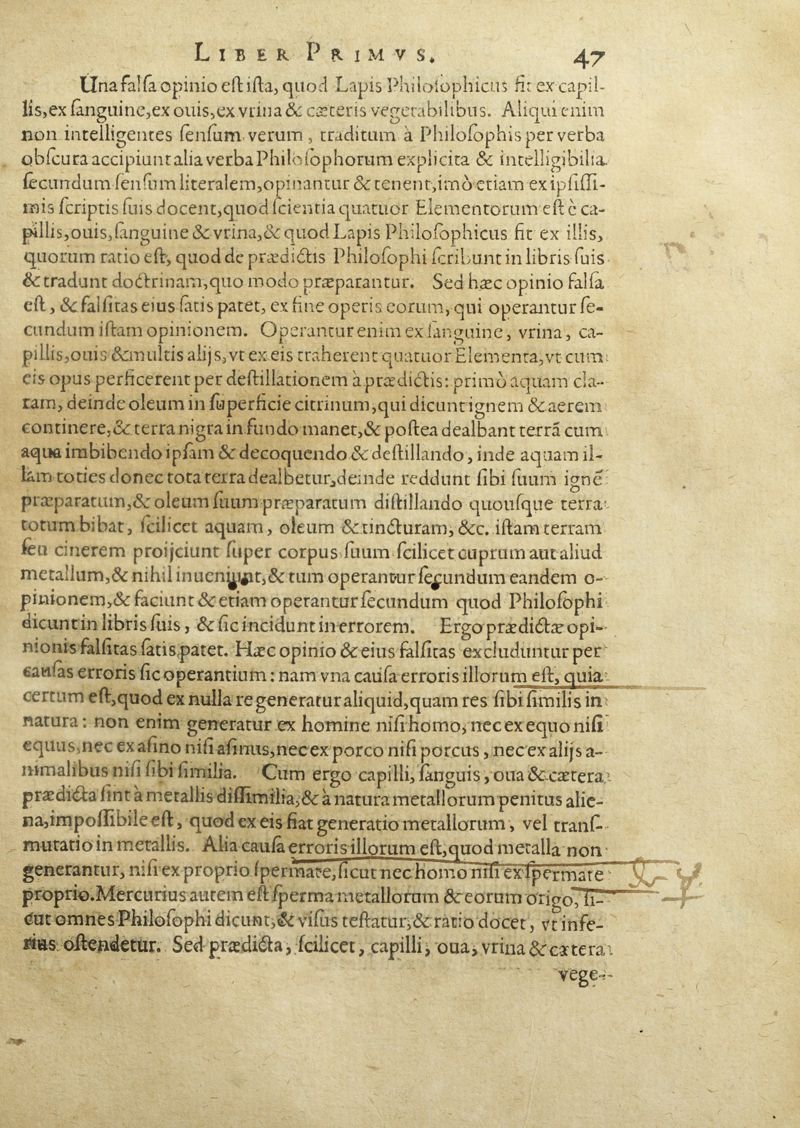 LIBER PRIMVS. 47
Una falſa opinio eſt iſta, quod Lapis Philoſophicus fit ex capil-
lis, ex ſanguine, ex ouis, ex vrina & cæteris vegetabilibus. Aliqui enim
non intelligentes ſenſum verum, traditum à Philoſophis per verba
obſcura accipiunt alia verba Philoſophorum explicita & intelligibilia
ſecundum ſenſum literalem, opinantur & tenent, imò etiam ex ipſiſſi-
mis ſcriptis ſuis docent, quod ſcientia quatuor Elementorum eſt è ca-
pillis, ouis, ſanguine & vrina, & quod Lapis Philoſophicus fit ex illis,
quorum ratio eſt, quod de prædictis Philoſophi ſcribunt in libris ſuis
& tradunt doctrinam, quo modo præparantur. Sed hæc opinio falſa
eſt, & falſitas eius ſatis patet, ex fine operis eorum, qui operantur ſe-
cundum iſtam opinionem. Operantur enim ex ſanguine, vrina, ca-
pillis, ouis & multis alijs, vt ex eis traherent quatuor Elementa, vt cum
eis opus perficerent per deſtillationem à prædictis: primò aquam cla-
ram, deinde oleum in ſuperficie citrinum, qui dicunt ignem & aerem
continere, & terra nigra in fundo manet, & poſtea dealbant terrã cum
aqua imbibendo ipſam & decoquendo & deſtillando, inde aquam il-
lam toties donec tota terra dealbetur, deinde reddunt ſibi ſuum ignẽ
præparatum, & oleum ſuum præparatum diſtillando quouſque terra
totum bibat, ſcilicet aquam, oleum & tincturam, &c. iſtam terram
ſeu cinerem proijciunt ſuper corpus ſuum ſcilicet cuprum aut aliud
metallum, & nihil inueniunt, & tum operantur ſecundum eandem o-
pinionem, & faciunt & etiam operantur ſecundum quod Philoſophi
dicunt in libris ſuis, & ſic incidunt in errorem. Ergo prædictæ opi-
nionis falſitas ſatis patet. Hæc opinio & eius falſitas excluduntur per
cauſas erroris ſic operantium: nam vna cauſa erroris illorum eſt, quia
certum eſt, quod ex nulla re generatur aliquid, quam res ſibi ſimilis in
natura: non enim generatur ex homine niſi homo, nec ex equo niſi
equus, nec ex aſino niſi aſinus, nec ex porco niſi porcus, nec ex alijs a-
nimalibus niſi ſibi ſimilia. Cum ergo capilli, ſanguis, oua & cætera
prædicta ſint à metallis diſſimilia, & à natura metallorum penitus alie-
na, impoſſibile eſt, quod ex eis fiat generatio metallorum, vel tranſ-
mutatio in metallis. Alia cauſa erroris illorum eſt, quod metalla non
generantur, niſi ex proprio ſpermate, ſicut nec homo niſi ex ſpermate
proprio. Mercurius autem eſt ſperma metallorum & eorum origo, ſi-
cut omnes Philoſophi dicunt, & viſus teſtatur, & ratio docet, vt infe-
rius oſtendetur. Sed prædicta, ſcilicet, capilli, oua, vrina & cætera
vege-